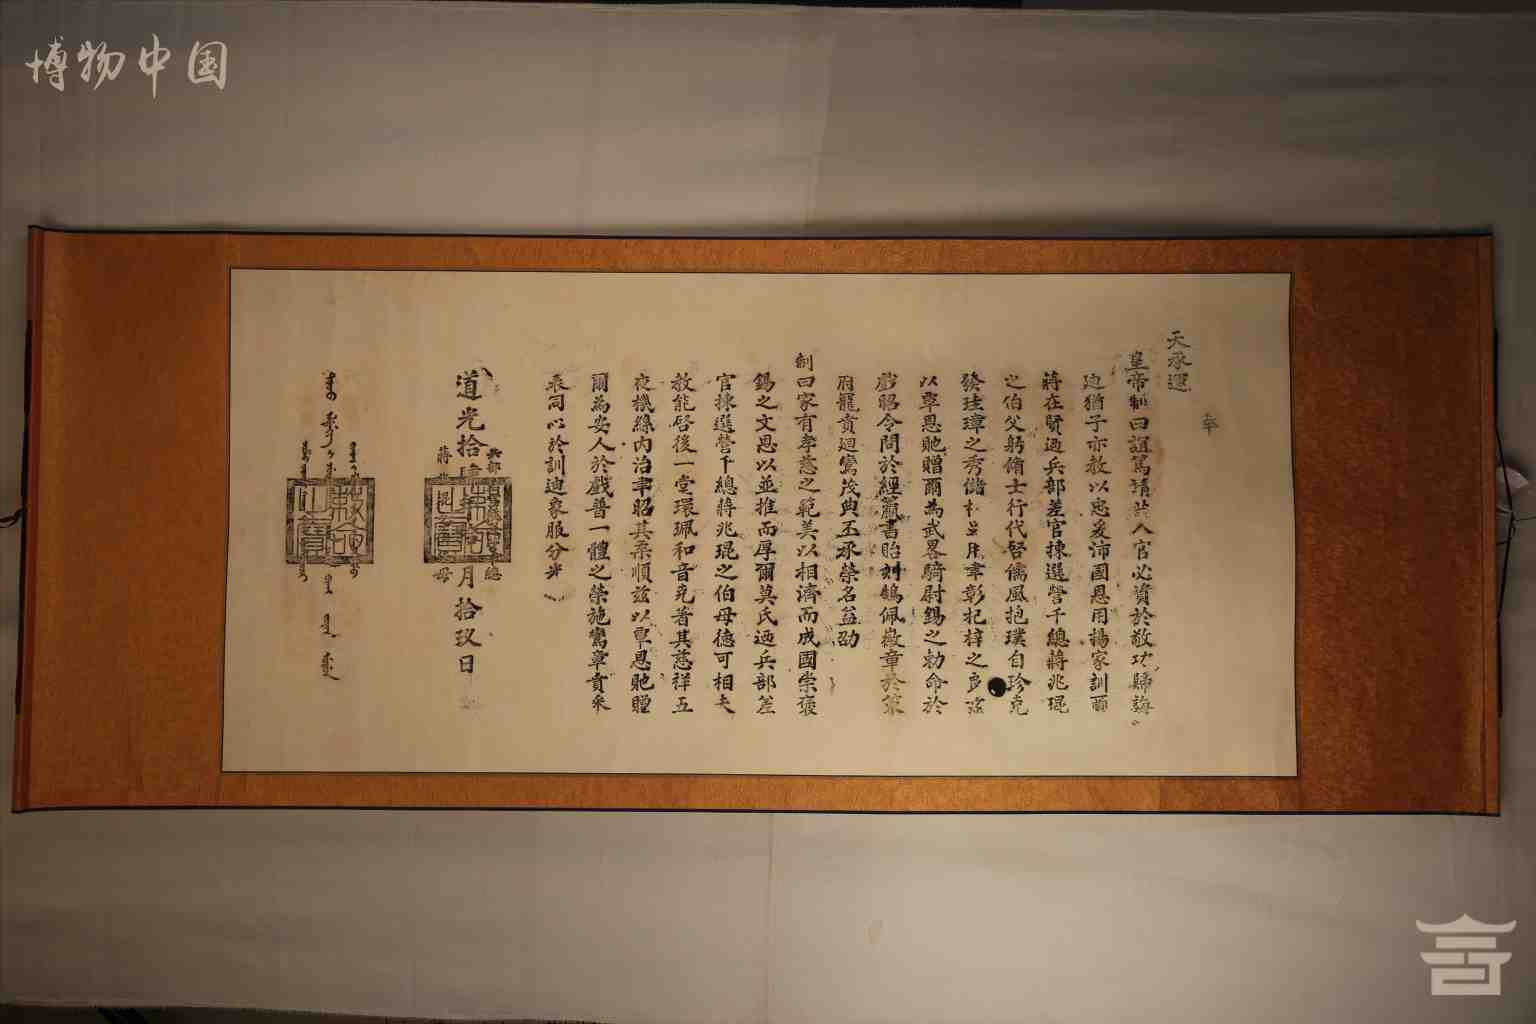 博物中国
奉
天承運
皇帝制曰誼篤靖共入官必資於敬功歸誨
迪猶子亦教以忠爰沛國恩用揚家訓爾
蔣在賢迺兵部差官揀選營千總蔣兆琨
之伯父躬脩士行代啓儒風抱璞自珍克
發珪璋之秀儲材 聿彰杞梓之 茲
以覃恩貤贈爾為武畧騎尉錫之勅命於
戲昭令問於經籝書貽刻鵠佩徽章於策
府寵賁廻鸞茂典丕承榮名益劭
制曰家有孝慈之範美以相濟而成國崇褒
錫之文恩以並推而厚爾莫氏迺兵部差
官揀選營千總蔣兆琨之伯母德可相夫
教能啓後一堂環珮和音克著其慈祥五
夜機絲內治聿昭其柔順茲以覃恩貤贈
爾為安人於戲普一體之榮施鸞章賁采
表同心於訓迪象服分光
道光拾肆年 月拾玖日
兵部
蔣
母
勅命之寶
勅命之寶